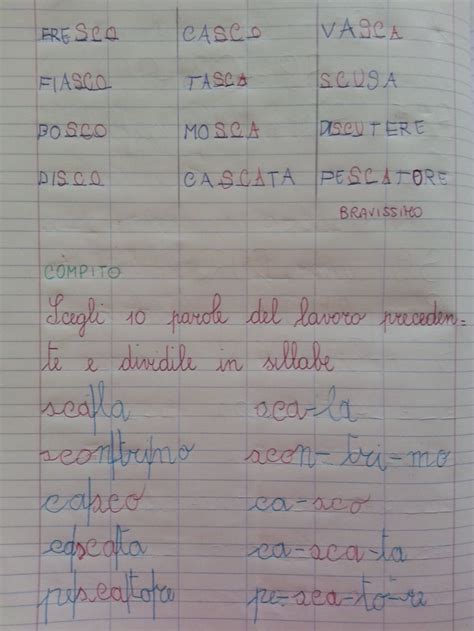 FRESCO CASCO VASCA
FIASCO TASCA SCUSA
BOSCO MOSCA DISCUTERE
DISCO CASCATA PESCATORE
BRAVISSIMO
COMPITO
Scegli 10 parole del lavoro preceden-
te e dividile in sillabe
sca/la sca-la
scon/tri/no scon-tri-no
ca/sco ca-sco
ca/sca/ta ca-sca-ta
pe/sca/to/re pe-sca-to-re